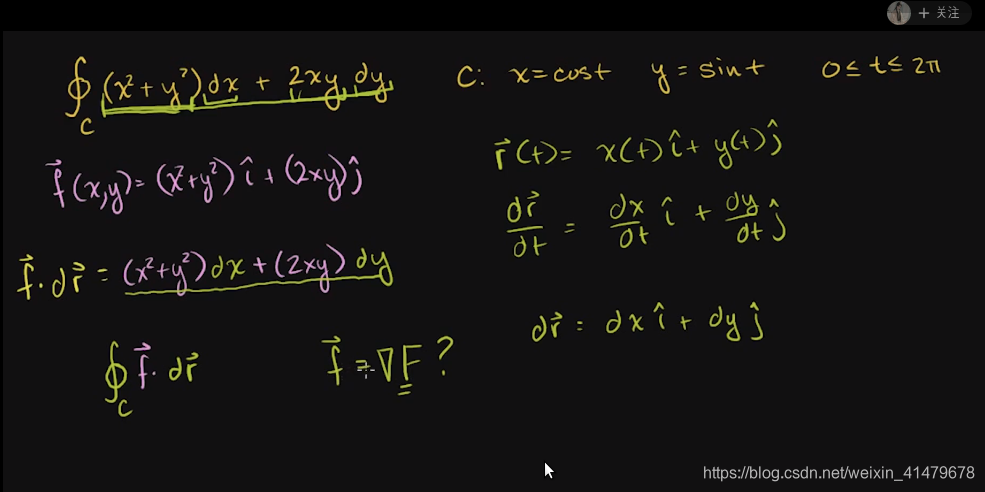 + 关注
∮_C (x²+y²)dx + 2xy dy    C: x=cost  y=sint  0≤t≤2π
r⃗(t)= x(t)î+ y(t)ĵ
f⃗(x,y)=(x²+y²)î+(2xy)ĵ
dr⃗/dt = dx/dt î + dy/dt ĵ
f⃗·dr⃗ = (x²+y²)dx+(2xy)dy
dr⃗ = dx î + dy ĵ
∮_C f⃗·dr⃗    f⃗ = ∇F ?
https://blog.csdn.net/weixin_41479678